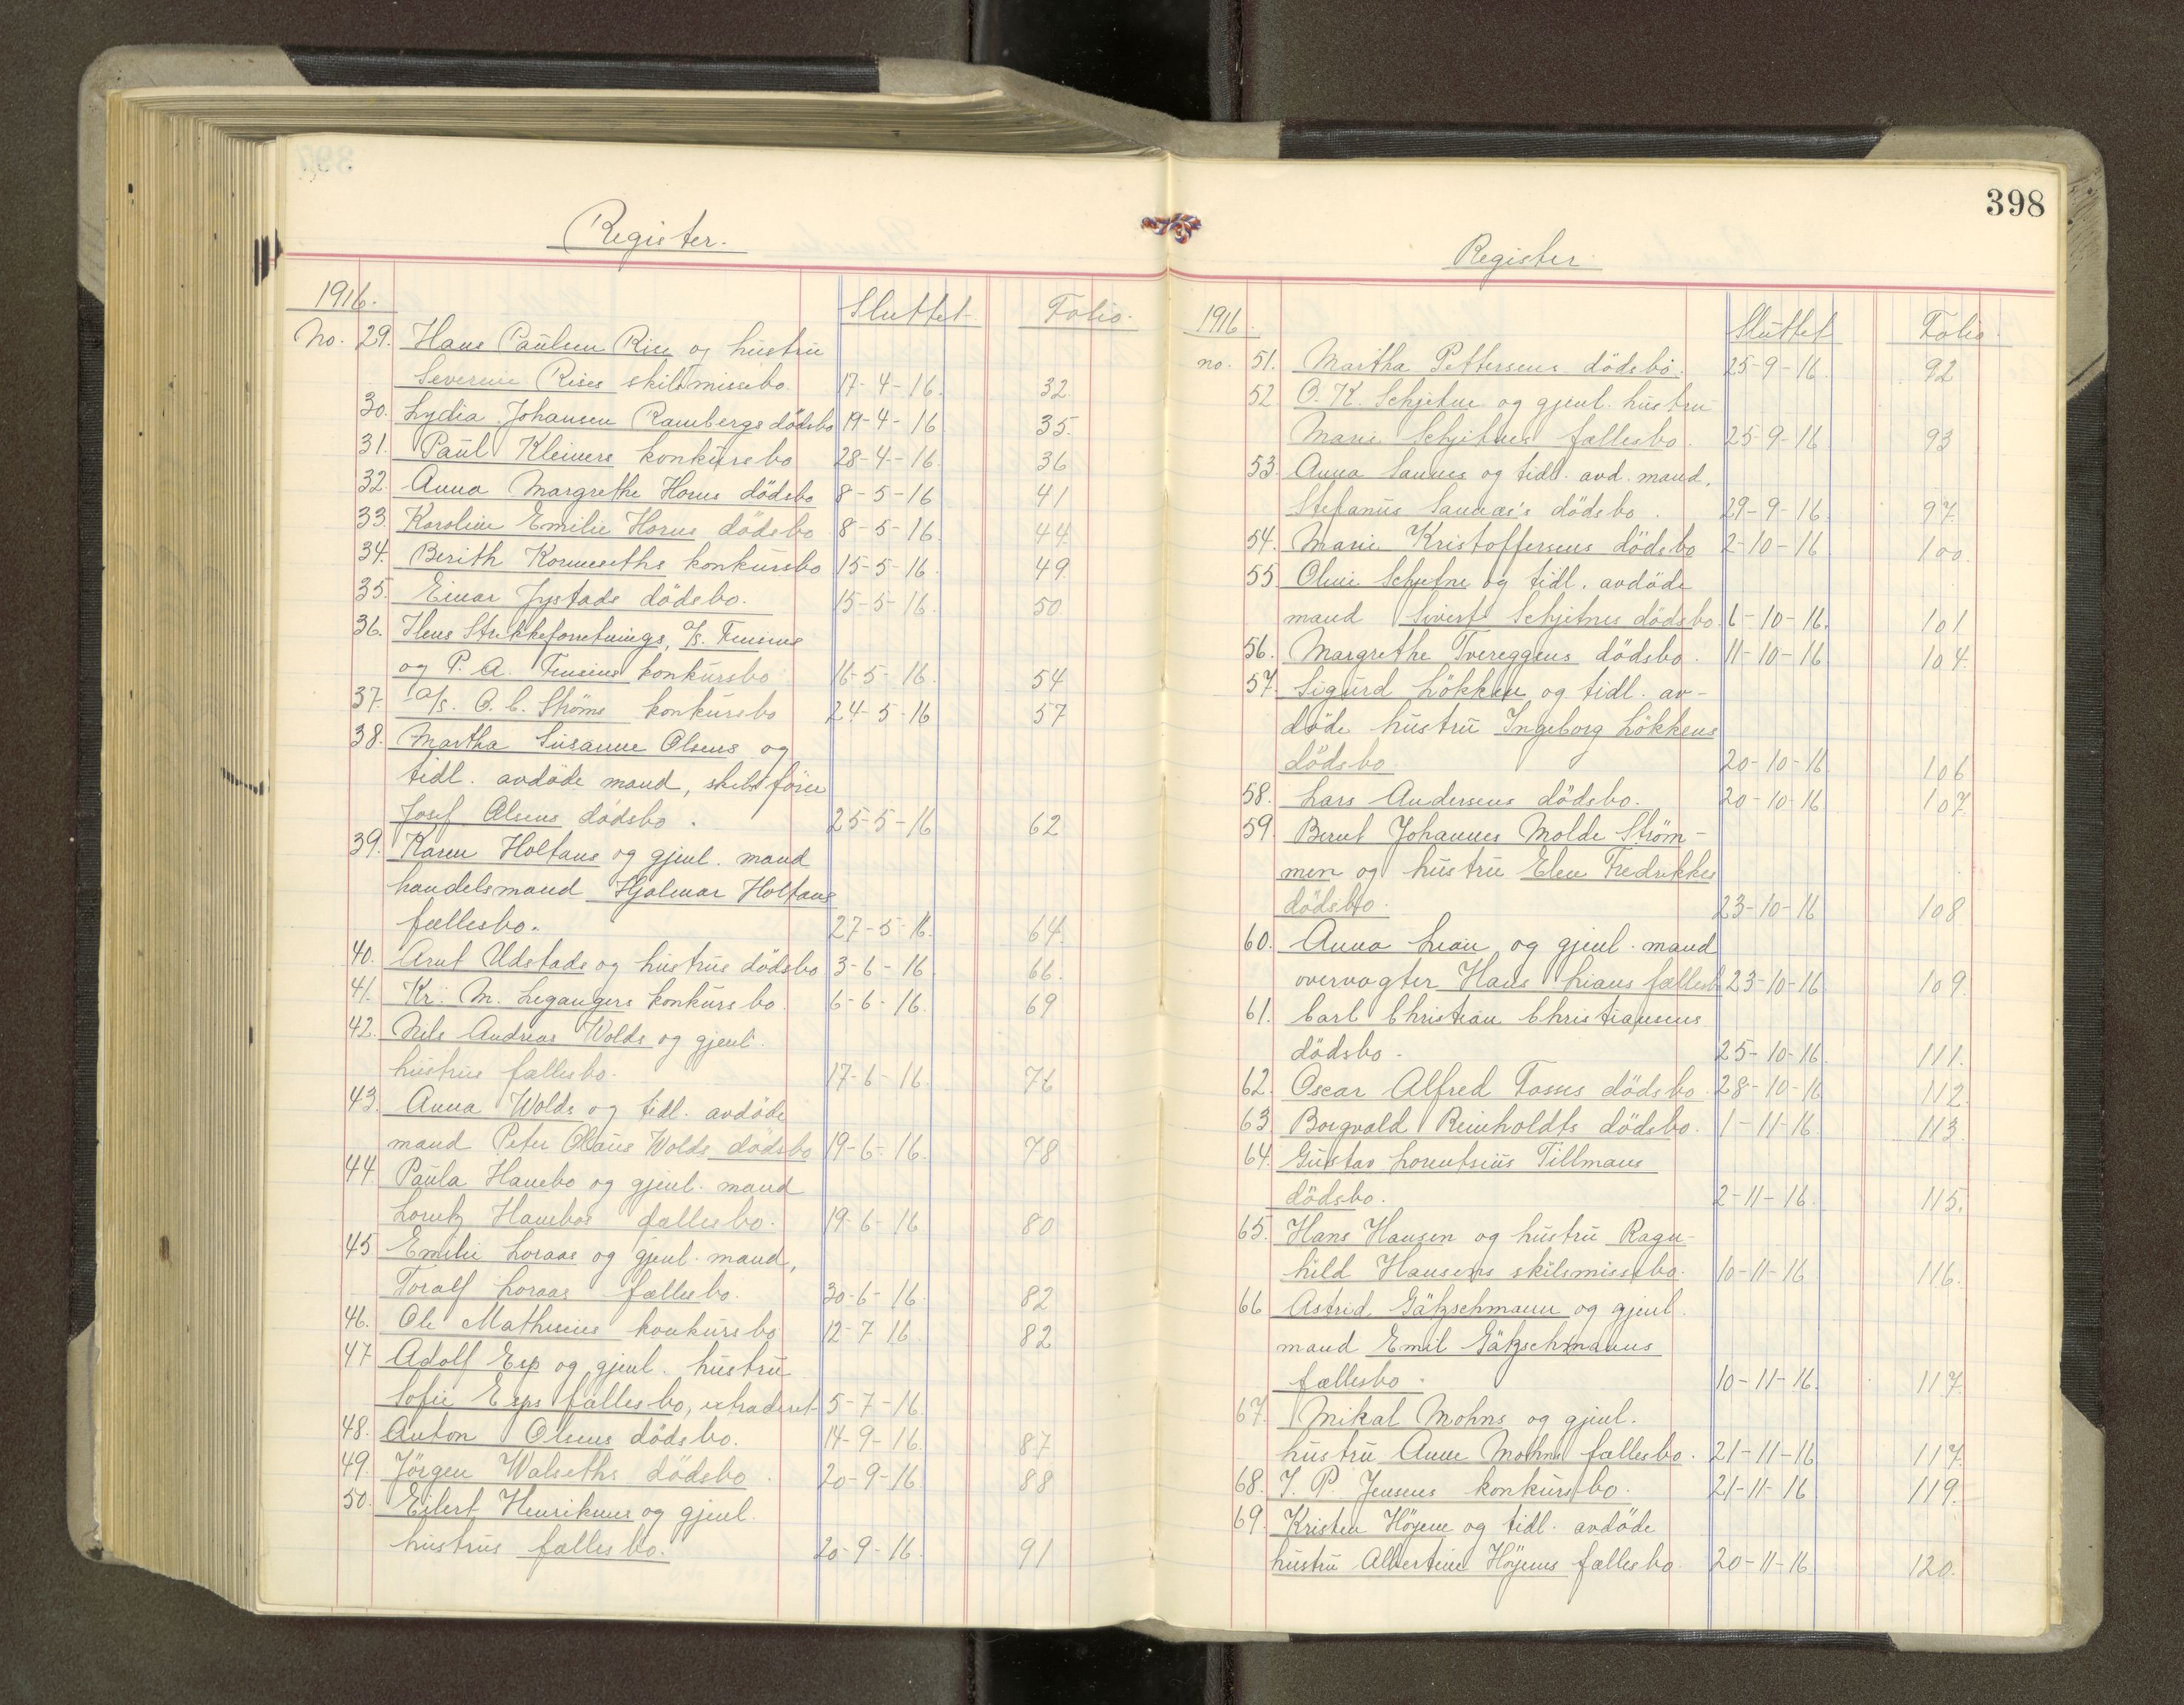 Register.
1916.
Sluttet
Folio.
No. 29. Hans Paulsen Rise og hustru
Severine Rises skilsmissebo. 17-4-16. 32
30. Lydia Johansen Rambergs dödsbo 19-4-16 35.
31. Paul Kleivers konkursbo 28-4-16. 36
32. Anna Margrethe Horns dödsbo 8-5-16 41
33. Karoline Emilie Horns dödsbo 8-5-16. 44.
34. Berith Kornseths konkursbo 15-5-16. 49.
35. Einar Jystads dödsbo. 15-5-16. 50.
36. Ilens Strikkeforretnings, a/s.
og P. A. konkursbo 16-5-16. 54
37. a/s. O. C. Ströms konkursbo 24-5-16 57
38. Martha Susanne Olsens og
tidl. avdöde mand, skibsförer
Josef Olsens dödsbo. 25-5-16 62
39. Karen Holtans og gjenl. mand
handelsmand Hjalmar Holtans
fællesbo. 27-5-16. 64.
40. Arnt Udstads og hustrus dödsbo 3-6-16 66.
41. Kr. M. Legangers konkursbo. 6-6-16. 69
42. Nils Andreas Wolds og gjenl.
hustrus fællesbo. 17-6-16. 76
43. Anna Wolds og tidl. avdöde
mand Peter Olaus Wolds dödsbo 19-6-16. 78
44. Paula Hanebo og gjenl. mand
Lorentz Hanebos fællesbo. 19-6-16 80
45 Emilie Loraas og gjenl. mand,
Toralf Loraas fællesbo. 30-6-16. 82
46. Ole Mathisens konkursbo 12-7 16. 82
47 Adolf Esp og gjenl. hustru
Sofie Esps fællesbo, extraderet 5-7-16.
48. Anton Olsens dödsbo. 14-9-16. 87
49. Jörgen Walseths dödsbo. 20-9-16. 88
50. Eilert Henriksens og gjenl.
hustrus fællesbo. 20-9-16. 91
398
Register
1916.
Sluttet
Folio.
no. 51. Martha Pettersens dödsbo. 25-9-16. 92
52 O. K. Schjetne og gjenl. hustru
Marie Schjetnes fællesbo. 25-9-16. 93
53. Anna Sannes og tidl. avd. mand,
Stefanus Sannæs's dödsbo. 29-9-16. 97.
54. Marie Kristoffersens dödsbo 2-10-16 100.
55. Oline Schjetne og tidl. avdöde
mand Sivert Schjetnes dödsbo. 6-10-16. 101
56. Margrethe Tvereggens dödsbo. 11-10-16 104.
57. Sigurd Lökken og tidl. av-
döde hustru Ingeborg Lökkens
dödsbo. 20-10-16 106
58. Lars Andersens dödsbo. 20-10-16. 107.
59. Bernt Johannes Molde Ström-
men og hustru Elen Fredrikkes
dödsbo. 23-10-16 108
60. Anna Lian, og gjenl. mand
overvogter Hans Lians fællesb 23-10-16 109.
61. Carl Christian Christiansens
dödsbo. 25-10-16. 111.
62. Oscar Alfred Fosses dödsbo. 28-10-16 112.
63 Borgvald Reinholdts dödsbo. 1-11-16. 113.
64. Gustav Lorentsius Tillmans
dödsbo. 2-11-16. 115.
65. Hans Hansen og hustru Ragn-
hild Hansens skilsmissebo. 10-11-16 116.
66 Astrid Gätzschmann og gjenl.
mand Emil Gätzschmanns
fællesbo. 10-11-16. 117.
67. Mikal Mohns og gjenl.
hustru Anne Mohns fællesbo. 21-11-16 117.
68. J. P. Jensens konkursbo. 21-11-16 119.
69. Kristen Höyem og tidl. avdöde
hustru Albertine Höyems fællesbo. 20-11-16. 120.